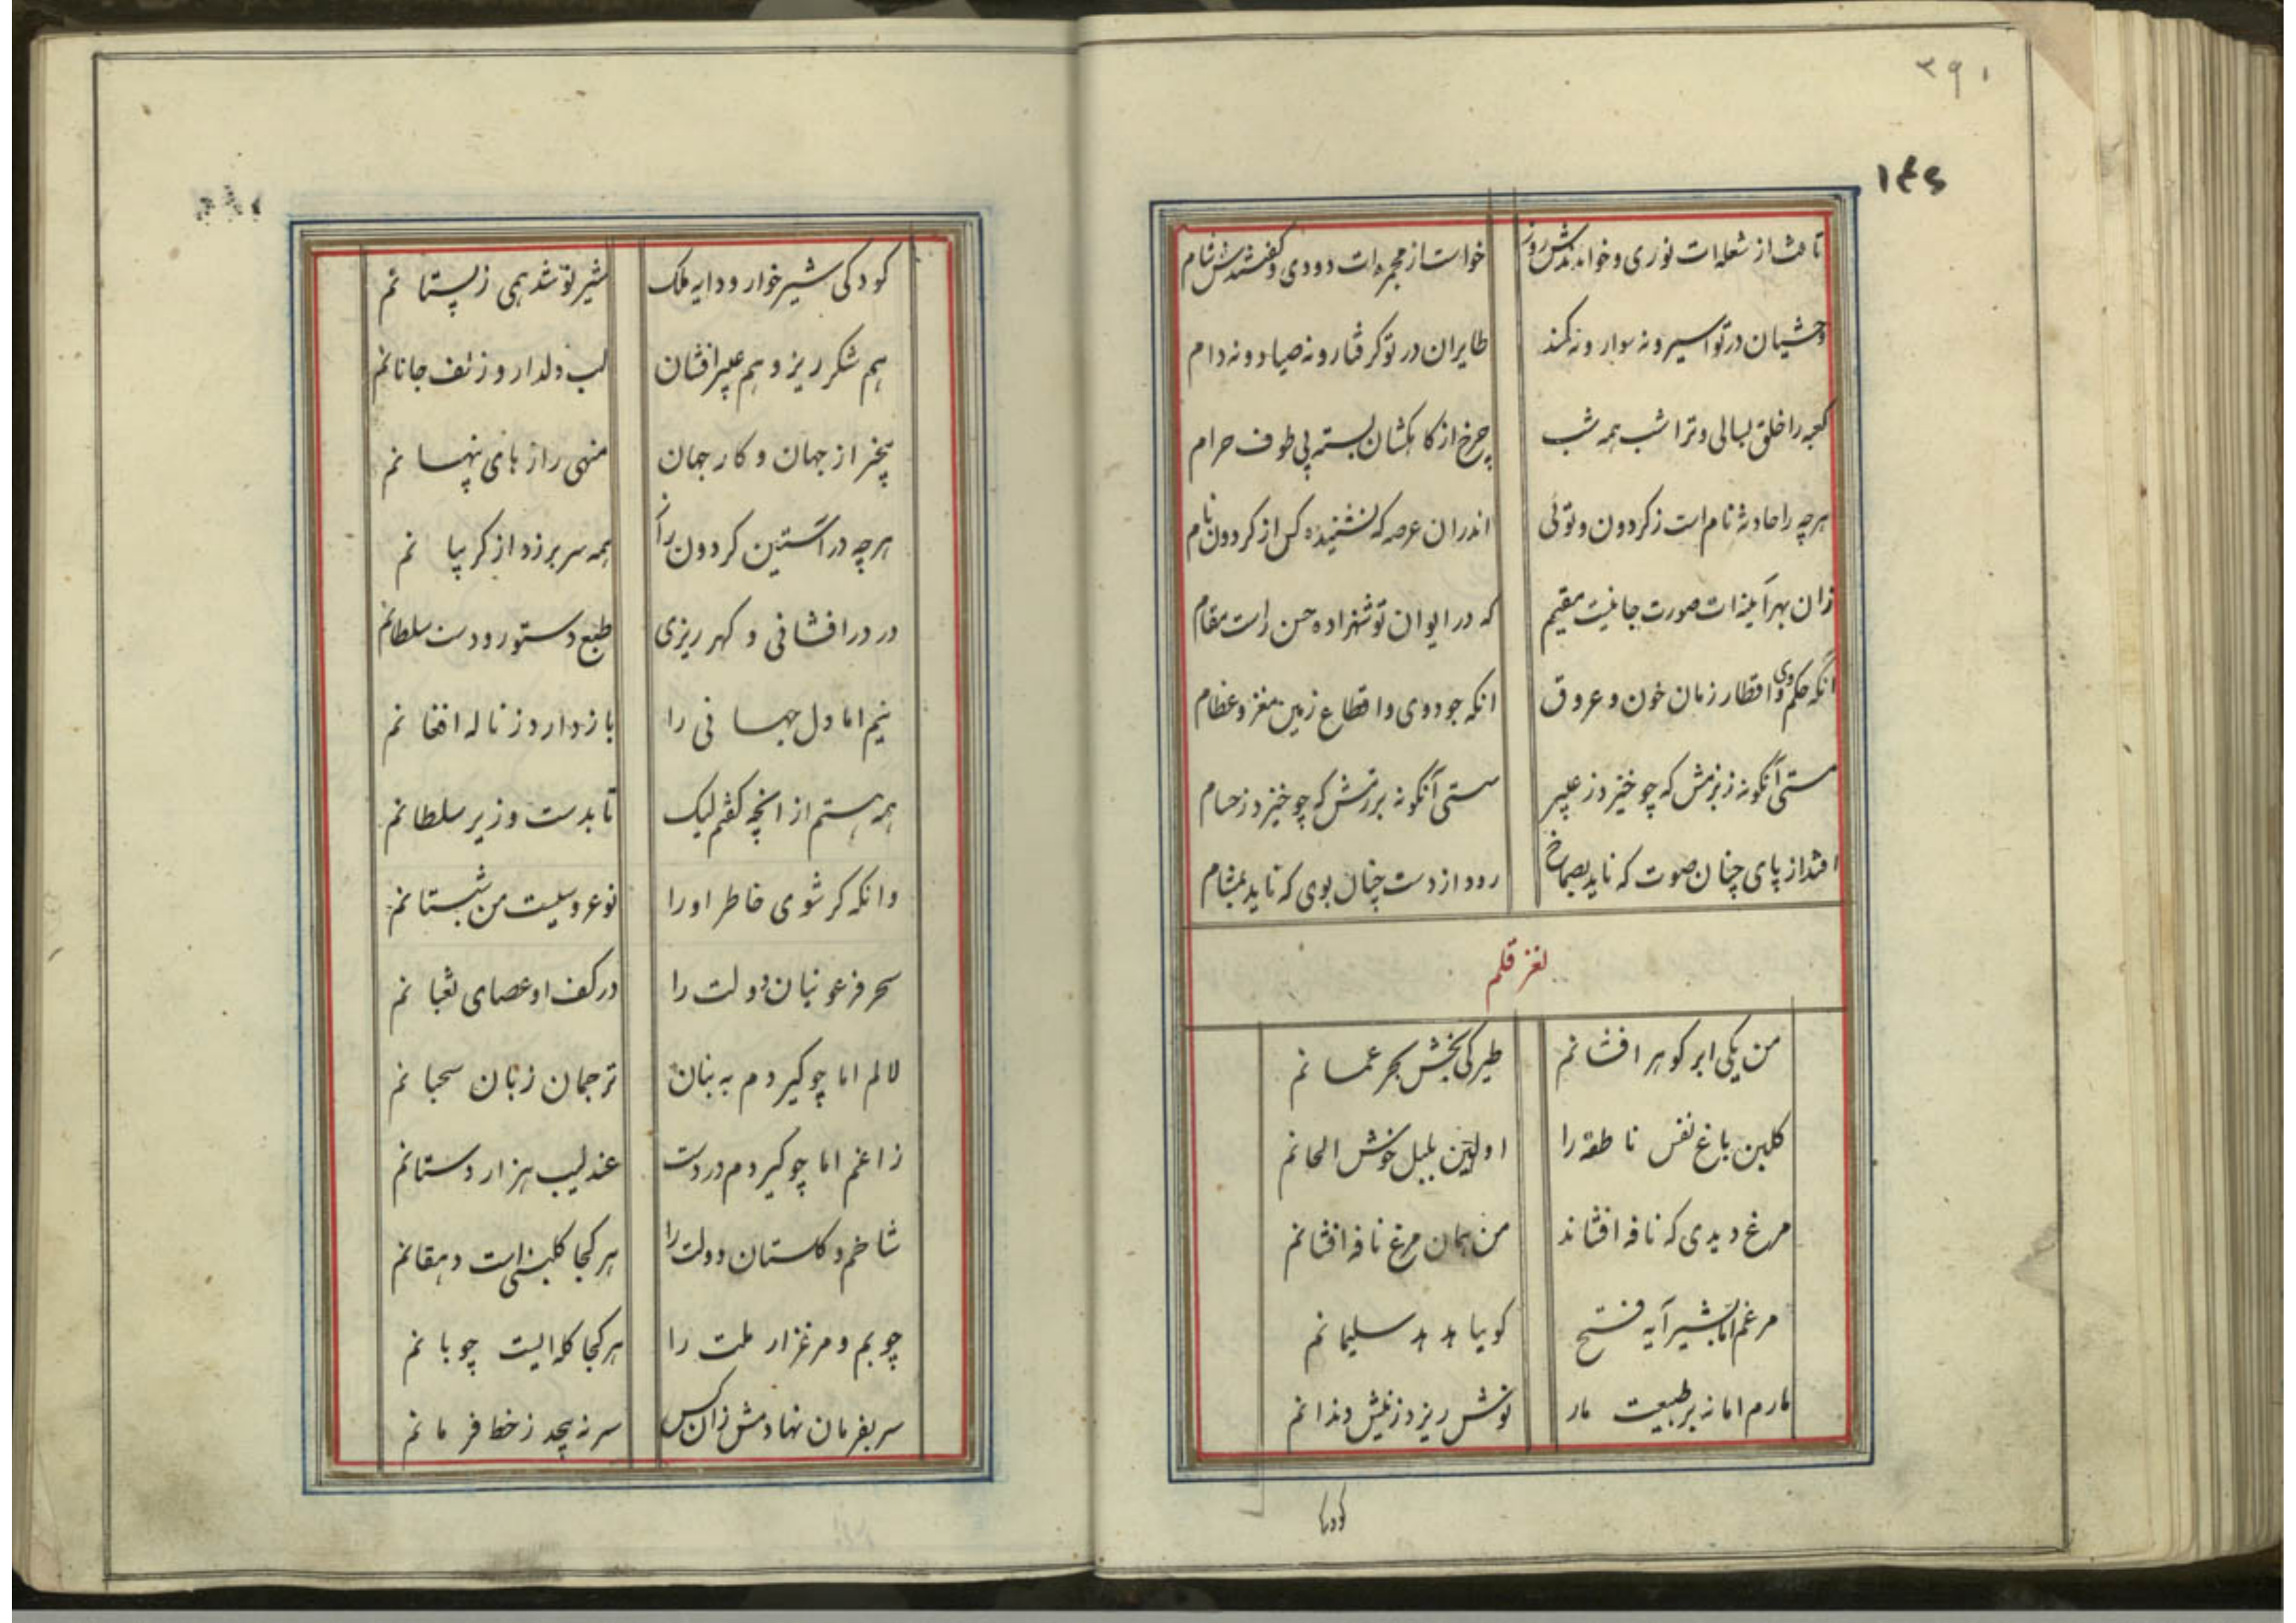 ۳۹۱
۱۴۶
تافت از شعله‌ات نوری و خواندندش روز
خواست از مجمره‌ات دودی و گفتندش شام
وحشیان در تو اسیر و نه سوار و نه کمند
طایران در تو گرفتار و نه صیاد و نه دام
کعبه را خلق بسالی و ترا شب همه شب
چرخ از کاهکشان بسته پی طوف حرام
هرچه را حادثه نام است ز گردون و توئی
اندران عرصه که نشنیده کس از گردون نام
زان بهر آینه‌ات صورت جانیست مقیم
که در ایوان تو شهزاده حسن راست مقام
آنکه حکم وی و اقطار زمان خون و عروق
انکه جود وی و اقطاع زمین مغز و عظام
مستی آنگونه ز بزمش که چو خیزد ز عبیر
سستی آنگونه برزمش که چو خیزد ز حسام
افتد از پای چنان صوت که ناید بصماخ
رود از دست چنان بوی که ناید بمشام
لغز قلم
من یکی ابر گوهر افشانم
طیرکی بخش بحر عمانم
گلبن باغ نفس ناطقه را
اولین بلبل خوش الحانم
مرغ دیدی که نافه افشاند
من همان مرغ نافه افشانم
مرغم اما بشیر آیه فتح
گوییا هدهد سلیمانم
مارم اما نه بر طبیعت مار
نوش ریزد ز نیش دندانم
کودکی
کودکی شیرخوار و دایه ملک
شیر نوشد همی ز پستانم
هم شکرریز و هم عبیرافشان
لب دلدار و زلف جانانم
بیخبر از جهان و کار جهان
منهی رازهای پنهانم
هرچه در آستین گردون راز
همه سر برزد از گریبانم
در درافشانی و گهرریزی
طبع دستور و دست سلطانم
نیم اما دل جهانی را
بازدارد ز ناله افغانم
همه هستم از انچه گفتم لیک
تا بدست وزیر سلطانم
وانکه گر شوی خاطر او را
نوعروسیست من شبستانم
سحر فرعونیان دولت را
در کف او عصای ثعبانم
لالم اما چو گیردم به بنان
ترجمان زبان سحبانم
زاغم اما چو گیردم در دست
عندلیب هزار دستانم
شاخم و گلستان دولت را
هر کجا گلبنی است دهقانم
چوبم و مرغزار ملت را
هر کجا گله‌ایست چوبانم
سر بفرمان نهادمش زان پس
سر نه پیچد ز خط فرمانم